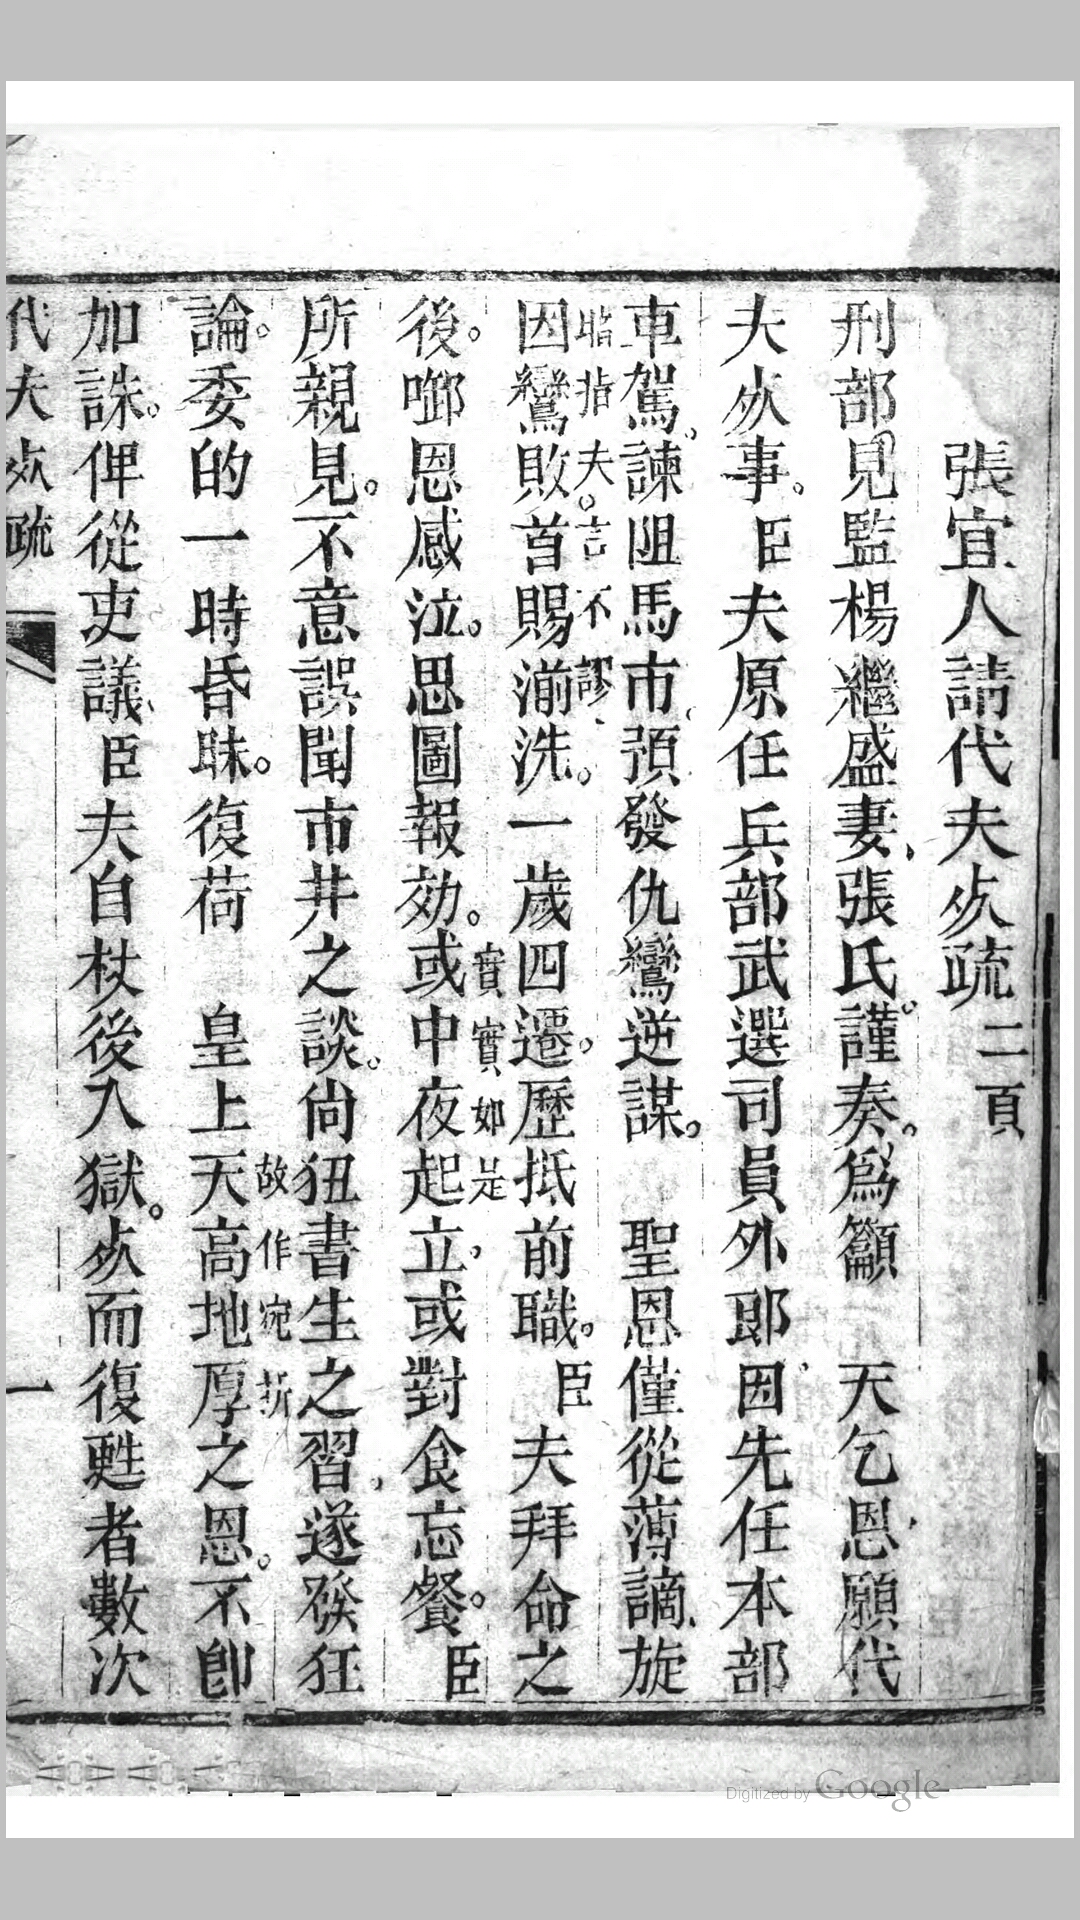 張宜人請代夫𣦸疏二頁
刑部見監楊繼盛妻張氏謹奏。爲籲　天乞恩願代
夫𣦸事。臣夫原任兵部武選司員外郎因先任本部
車駕、諫阻馬市。預發仇鸞逆謀。　聖恩僅從薄謫、旋
臨指夫。言不謬、
因鸞敗首賜湔洗。一歲四遷。歷抵前職。臣夫拜命之
後。啣恩感泣。思圖報効。或中夜起立、或對食忘餐。臣
實實如是
所親見。不意誤聞市井之談。尙狃書生之習、遂發狂
論。委的一時昏昧。復荷　皇上天高地厚之恩。不卽
故作宛折
加誅。俾從吏議、臣夫自杖後入獄。𣦸而復甦者數次
代夫𣦸疏
一
Digitized by Google